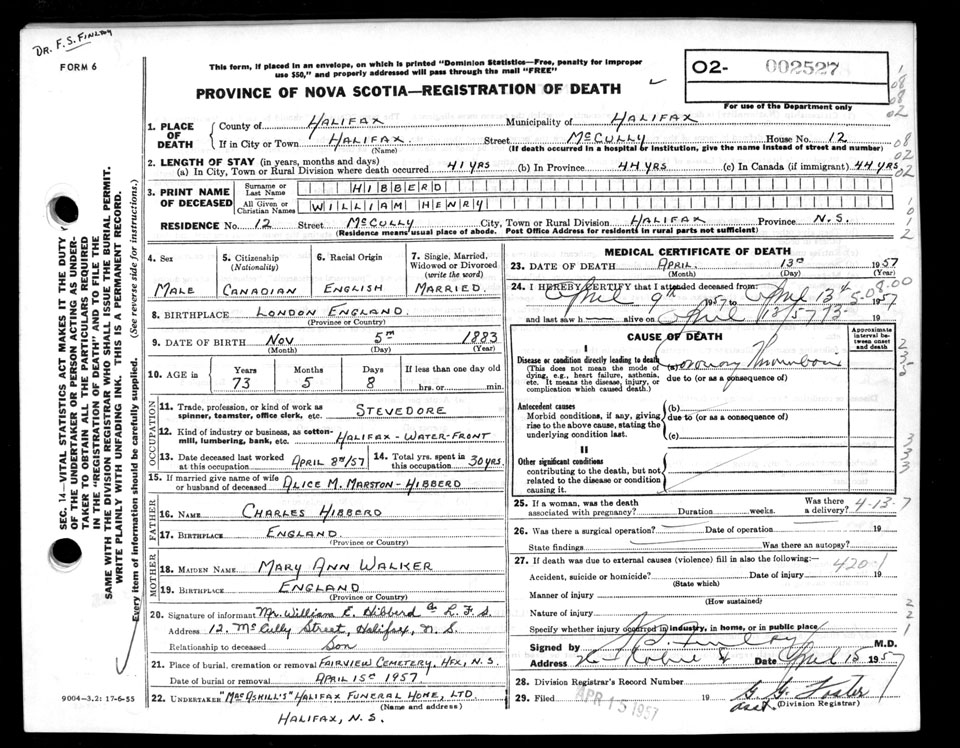 DR. F. S. FINLAY
FORM 6
This form, if placed in an envelope, on which is printed "Dominion Statistics—Free, penalty for improper
use $50," and properly addressed will pass through the mail "FREE"
O2- 002527
For use of the Department only
PROVINCE OF NOVA SCOTIA—REGISTRATION OF DEATH
1. PLACE OF DEATH County of HALIFAX Municipality of HALIFAX
If in City or Town HALIFAX Street McCULLY House No. 12
(Name) (If death occurred in a hospital or institution, give the name instead of street and number)
2. LENGTH OF STAY (in years, months and days)
(a) In City, Town or Rural Division where death occurred 41 YRS (b) In Province 44 YRS (c) In Canada (if immigrant) 44 YRS
3. PRINT NAME OF DECEASED Surname or Last Name HIBBERD
All Given or Christian Names WILLIAM HENRY
RESIDENCE No. 12 Street McCULLY City, Town or Rural Division HALIFAX Province N.S.
(Residence means usual place of abode. Post Office Address for residents in rural parts not sufficient)
4. Sex 5. Citizenship (Nationality) 6. Racial Origin 7. Single, Married, Widowed or Divorced (write the word)
MALE CANADIAN ENGLISH MARRIED.
8. BIRTHPLACE LONDON ENGLAND.
(Province or Country)
9. DATE OF BIRTH NOV 5TH 1883
(Month) (Day) (Year)
10. AGE in Years Months Days If less than one day old
73 5 8 hrs. or min.
OCCUPATION
11. Trade, profession, or kind of work as spinner, teamster, office clerk, etc. STEVEDORE
12. Kind of industry or business, as cotton-mill, lumbering, bank, etc. HALIFAX - WATER-FRONT
13. Date deceased last worked at this occupation APRIL 8TH/57 14. Total yrs. spent in this occupation 30 YRS.
15. If married give name of wife or husband of deceased ALICE M. MARSTON-HIBBERD
FATHER
16. NAME CHARLES HIBBERD
17. BIRTHPLACE ENGLAND.
(Province or Country)
MOTHER
18. MAIDEN NAME MARY ANN WALKER
19. BIRTHPLACE ENGLAND
(Province or Country)
20. Signature of informant Mr. William E. Hibberd L.F.S.
Address 12. McCully Street, Halifax, N.S.
Relationship to deceased Son
21. Place of burial, cremation or removal FAIRVIEW CEMETERY, HFX, N.S.
Date of burial or removal APRIL 15TH 1957
22. UNDERTAKER "MACASKILL'S" HALIFAX FUNERAL HOME, LTD.
(Name and address)
HALIFAX, N.S.
9004—3.2: 17-6-55
SEC. 14—VITAL STATISTICS ACT MAKES IT THE DUTY
OF THE UNDERTAKER OR PERSON ACTING AS UNDER-
TAKER TO OBTAIN ALL THE PARTICULARS REQUIRED
IN THE "REGISTRATION OF DEATH" AND TO FILE THE
SAME WITH THE DIVISION REGISTRAR WHO SHALL ISSUE THE BURIAL PERMIT.
WRITE PLAINLY WITH UNFADING INK. THIS IS A PERMANENT RECORD.
Every item of information should be carefully supplied. (See reverse side for instructions.)
MEDICAL CERTIFICATE OF DEATH
23. DATE OF DEATH APRIL 13TH 1957
(Month) (Day) (Year)
24. I HEREBY CERTIFY that I attended deceased from:
April 9th 1957 to April 13th 1957
and last saw h alive on April 13/57 19
CAUSE OF DEATH
Approximate interval between onset and death
I
Disease or condition directly leading to death (a) Coronary Thrombosis
(This does not mean the mode of dying, e.g., heart failure, asthenia, etc. It means the disease, injury, or complication which caused death.)
due to (or as a consequence of)
Antecedent causes (b)
Morbid conditions, if any, giving rise to the above cause, stating the underlying condition last.
due to (or as a consequence of)
(c)
II
Other significant conditions
contributing to the death, but not related to the disease or condition causing it.
25. If a woman, was the death associated with pregnancy? Duration weeks. Was there a delivery? 4-13-7
26. Was there a surgical operation? Date of operation 19
State findings Was there an autopsy?
27. If death was due to external causes (violence) fill in also the following:—
420-1
Accident, suicide or homicide? Date of injury 19
(State which)
Manner of injury
(How sustained)
Nature of injury
Specify whether injury occurred in industry, in home, or in public place
Signed by F. S. Finlay M.D.
Address Robie St Date April 15 1957
28. Division Registrar's Record Number
29. Filed APR 15 1957 19
G. G. Foster
asst. (Division Registrar)